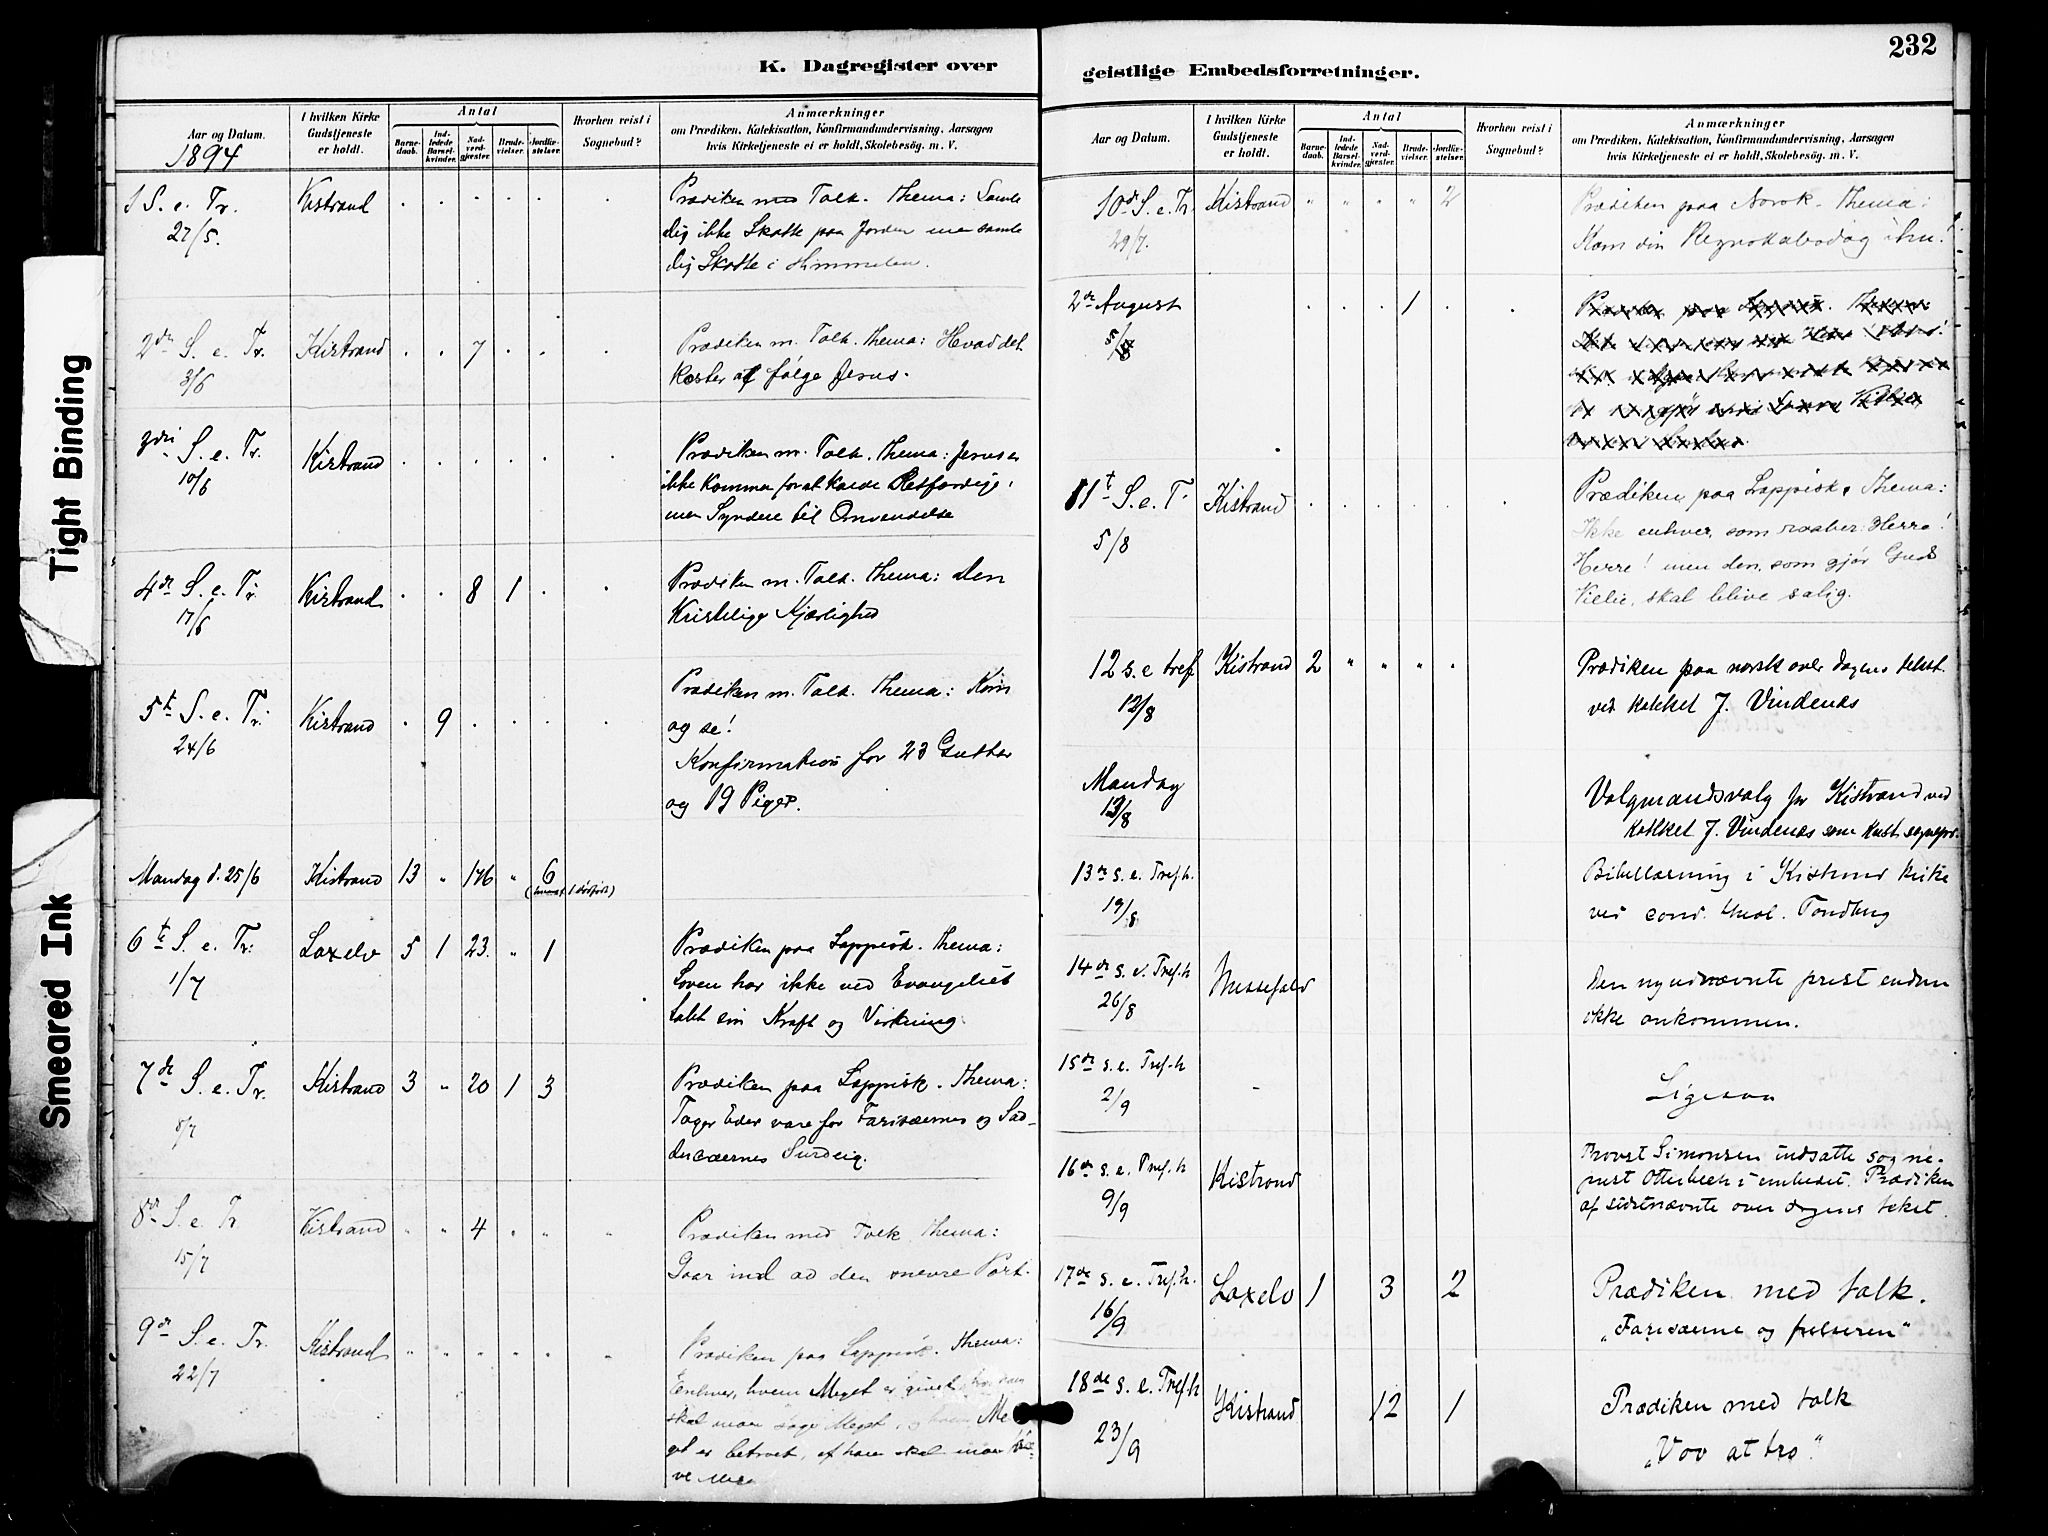 K. Dagregister over
Aar og Datum.
1894
I hvilken Kirke
Gudstjeneste
er holdt.
Antal
Barne-
daab.
Ind-
ledede
Barsel-
kvinder.
Nad-
verd-
gjester.
Brude-
vielser.
Jordfæ-
stelser.
Hvorhen reist i
Sognebud?
Anmærkninger
om Prædiken, Katekisation, Konfirmandundervisning, Aarsagen
hvis Kirketjeneste ei er holdt, Skolebesög. m. V.
1 S. e. Tr. Kistrand Prædiken med Tolk. Thema: Samle
27/5. dig ikke Skatte paa Jorden men samle
dig Skatte i Himmelen.
2den S. e. Tr. Kistrand . . 7 . . . Prædiken m. Tolk. Thema: Hvad det
3/6 koster at følge Jesus.
3die S. e. Tr. Kistrand Prædiken m. Tolk. Thema: Jesus er
10/6 ikke kommen for at kalde Retfærdige,
men Syndere til Omvendelse
4de S. e. Tr. Kistrand . . 8 1 . . Prædiken m. Tolk. Thema: Den
17/6 Kristelige Kjærlighed
5te S. e. Tr. Kistrand . 9 . . . . Prædiken m. Tolk. Thema: Kom
24/6 og se!
Konfirmation for 23 Gutter
og 19 Piger.
Mandag d. 25/6 Kistrand 13 " 176 " 6
1 dødfødt)
6te S. e. Tr: Laxelv 5 1 23. " 1 Prædiken paa Lappisk. Thema:
1/7 Loven har ikke ved Evangeliet
tabt sin Kraft og Virkning.
7de S. e. Tr. Kistrand 3 " 20 1 3 Prædiken paa Lappisk. Thema:
8/7 Tager Eder vare for Farisæernes og Sad-
ducæernes Surdeig.
8de S. e. Tr. Kistrand " " 4 " " " Prædiken med Tolk Thema:
15/7 Gaar ind ad den snevre Port.
9de S. e. Tr. Kistrand " " " " " " Prædiken paa Lappisk. Thema:
22/7 Enhver, hvem Meget er givet, hos ham
skal man søge Meget, hvem Me-
get er betroet, af ham skal man kræ-
ve mere
232
geistlige Embedsforretninger.
Aar og Datum.
I hvilken Kirke
Gudstjeneste
er holdt.
Antal
Barne-
daab.
Ind-
ledede
Barsel-
kvinder.
Nad-
verd-
gjester.
Brude-
vielser.
Jordfæ-
stelser.
Hvorhen reist i
Sognebud?
Anmærkninger
om Prædiken, Katekisation, Konfirmandundervisning, Aarsagen
hvis Kirketjeneste ei er holdt, Skolebesög. m. V.
10de S. e. Tr. Kistrand " " " " 2 Prædiken paa Norsk. Thema:
29/7. Kom din Regnskabsdag ihu!
2de August . . . 1 . .
11te S. e. T. Kistrand Prædiken paa Lappisk. Thema:
5/8 Ikke enhver, som raaber: Herre!
Herre! men den, som gjør Guds
Villie, skal blive salig.
12 s. e. tref. Kistrand 2 " " " " Prædiken paa norsk over dagens tekst
12/8 ved kateket J. Vindenes
Mandag Valgmandsvalg for Kistrand ved
13/8 kateket J. Vindenes som konst. sognepr.
13de s. e. Tref.h. Bibellæsning i Kistrand kirke
19/8 ved cand. theol. Tandberg
14de s. e. Tref.h Messefald Den nyudnævnte prest endnu
26/8 ikke ankommen.
15de s. e. Tref.h - Ligesaa
2/9
16de s. e. Tref.h Kistrand Provst Simonsen indsatte sogne-
9/9 prest Otterbech i embedet. Prædiken
af sidstnævnte over dagens tekst.
17de s. e. Tref.h. Laxelv 1 3 2 Prædiken med tolk.
16/9 „Farisæerne og frelseren"
18de s. e. Tref.h Kistrand 12 1 Prædiken med tolk
23/9 „Vov at tro".
Tight Binding
Smeared Ink